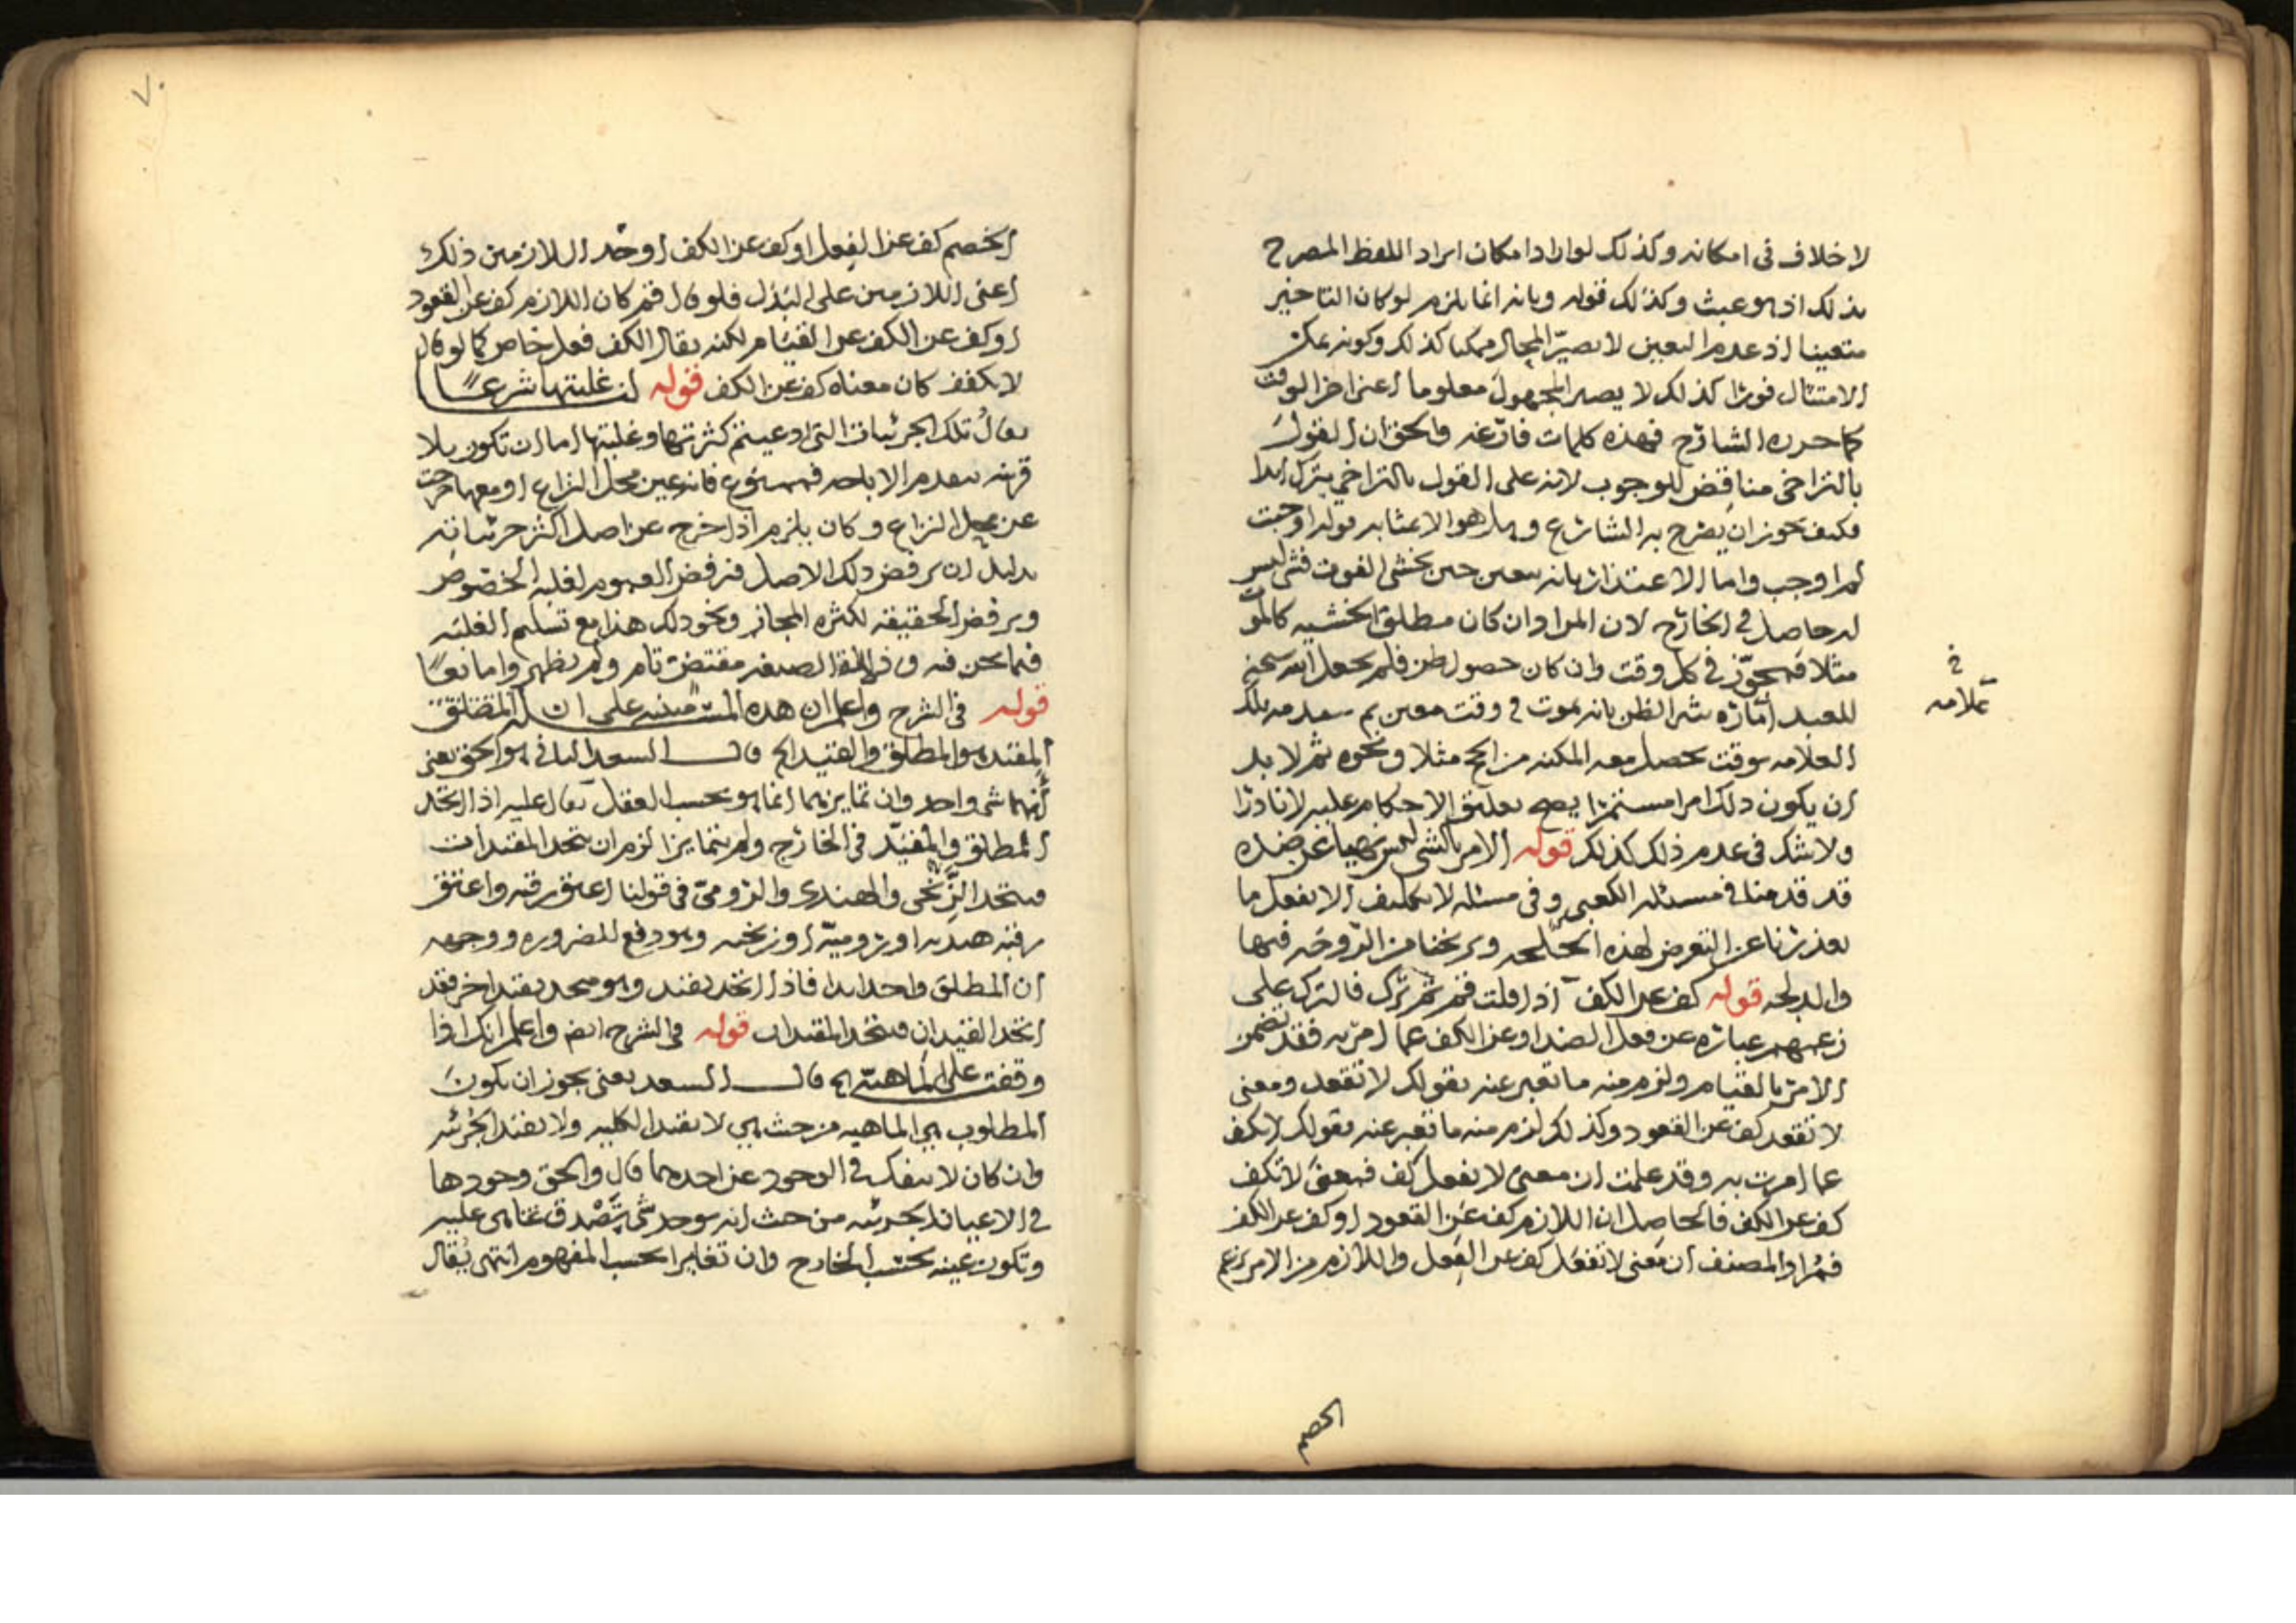 لا خلاف في امكانه وكذلك لو اراد امكان ايراد اللفظ المصرح
بذلك اذ هو عبث وكذلك قوله وبانه انما يلزم لو كان التاخير
متعينا اذ عدم التعيين لا يصيّر المحال ممكنا كذلك وكونه يمكن
الامتثال فورا كذلك لا يصير المجهول معلوما اعني اخر الوقت
كما حرره الشارح فهذه كلمات فارغه والحق ان القول
بالتراخي مناقض للوجوب لانه على القول بالتراخي يترك ابدا
فكيف يجوز ان يصرح به الشارع وهل هو الا بمثابه قوله اوجبت
لم اوجب واما الاعتذار بانه يتعين حين يخشى الفوت فشي ليس
له حاصل في الخارج لان المراد ان كان مطلق الخشيه كالموت
مثلا فمجوّز في كل وقت وان كان حصول ظن فلم يجعل الله سبحنه
للعبد اماره تثير الظن بانه يموت في وقت معين
العلامه بوقت يحصل معه المكنه من الحج مثلا ونحوه ثم لا بد
ان يكون ذلك امرا مستمرا يصح تعليق الاحكام عليه لا نادرا
ولا شك في عدم ذلك كذلك قوله الامر بالشي ليس نهيا عن ضده
قد قدمنا في مسئله الكعبي وفي مسئله لا تكليف الا بفعل ما
يعذرنا عن التعرض لهذه ويريحنا من فيها
قوله كف عن الكف اذا قلت قم ثم ترك فالترك على
زعمهم عباره عن فعل الضد او عن الكف عما امر به فقد تضمن
الامر بالقيام ولزم منه ما تعبر عنه بقولك لا تقعد ومعنى
لا تقعد كف عن القعود وكذلك لزم منه ما تعبر عنه بقولك لا تكف
عما امرت به وقد علمت ان معنى لا تفعل كف فمعنى لا تكف
كف عن الكف فالحاصل ان اللازم كف عن القعود او كف عن الكف
فمراد المصنف ان معنى لا تفعل كف عن الفعل واللازم من الامر بزعم
الخصم
في
علامه
الخصم كف عن الفعل او كف عن الكف او احد اللازمين ذلك
اعني اللازمين على البدل فلو قال قم كان اللازم كف عن القعود
او كف عن الكف عن القيام لكنه يقال الكف فعل خاص كما لو قال
لا تكفف كان معناه كف عن الكف قوله لنا غلبتها شرعا
يقال تلك الجزئيات التي ادعيتم كثرتها وغلبتها اما ان تكون بلا
قرينه بعدم الاباحه فممنوع فانه عين محل النزاع او معها خرجت
عن محل النزاع وكان يلزم اذا خرج عن اصل اكثر جزئياته
بدليل ان يرفض ذلك الاصل فنرفض العموم لغلبه الخصوص
ويرفض الحقيقه لكثره المجاز ونحو ذلك هذا مع تسليم الغلبه
فيما نحن فيه الصيغه مقتض تام ولم يظهروا مانعا
قوله في الشرح واعلم ان هذه المسئله مبنيه على ان المطلق
المقيد هو المطلق والقيد الخ قال السعد الثاني هو الحق يعني
انهما شي واحد وان تمايزهما انما هو بحسب العقل يقال عليه اذا اتحد
المطلق والمقيّد في الخارج ولم يتمايزا لزم ان يتحد المقيدات
فيتحد الزنجي والهندي والرومي في قولنا اعتق رقبه واعتق
رقبه هنديه او روميّه او زنجيه وهو دفع للضروره ووجهه
ان المطلق واحد ابدا فاذا اتحد بقيد وهو متحد بقيد اخر فقد
اتحد القيدان فيتحد المقيدات قوله في الشرح ايضا واعلم انك اذا
وقفت على الماهيّه الخ قال السعد يعني يجوز ان يكون
المطلوب هي الماهيه من حيث هي لا بقيد الكليه ولا بقيد الجزئيه
وان كان لا ينفك في الوجود عن احدهما قال والحق وجودها
في الاعيان من حيث انه يوجد شي يَصْدق عليه
وتكون عينه بحسب الخارج وان تغايرا بحسب المفهوم انتهى يُقال